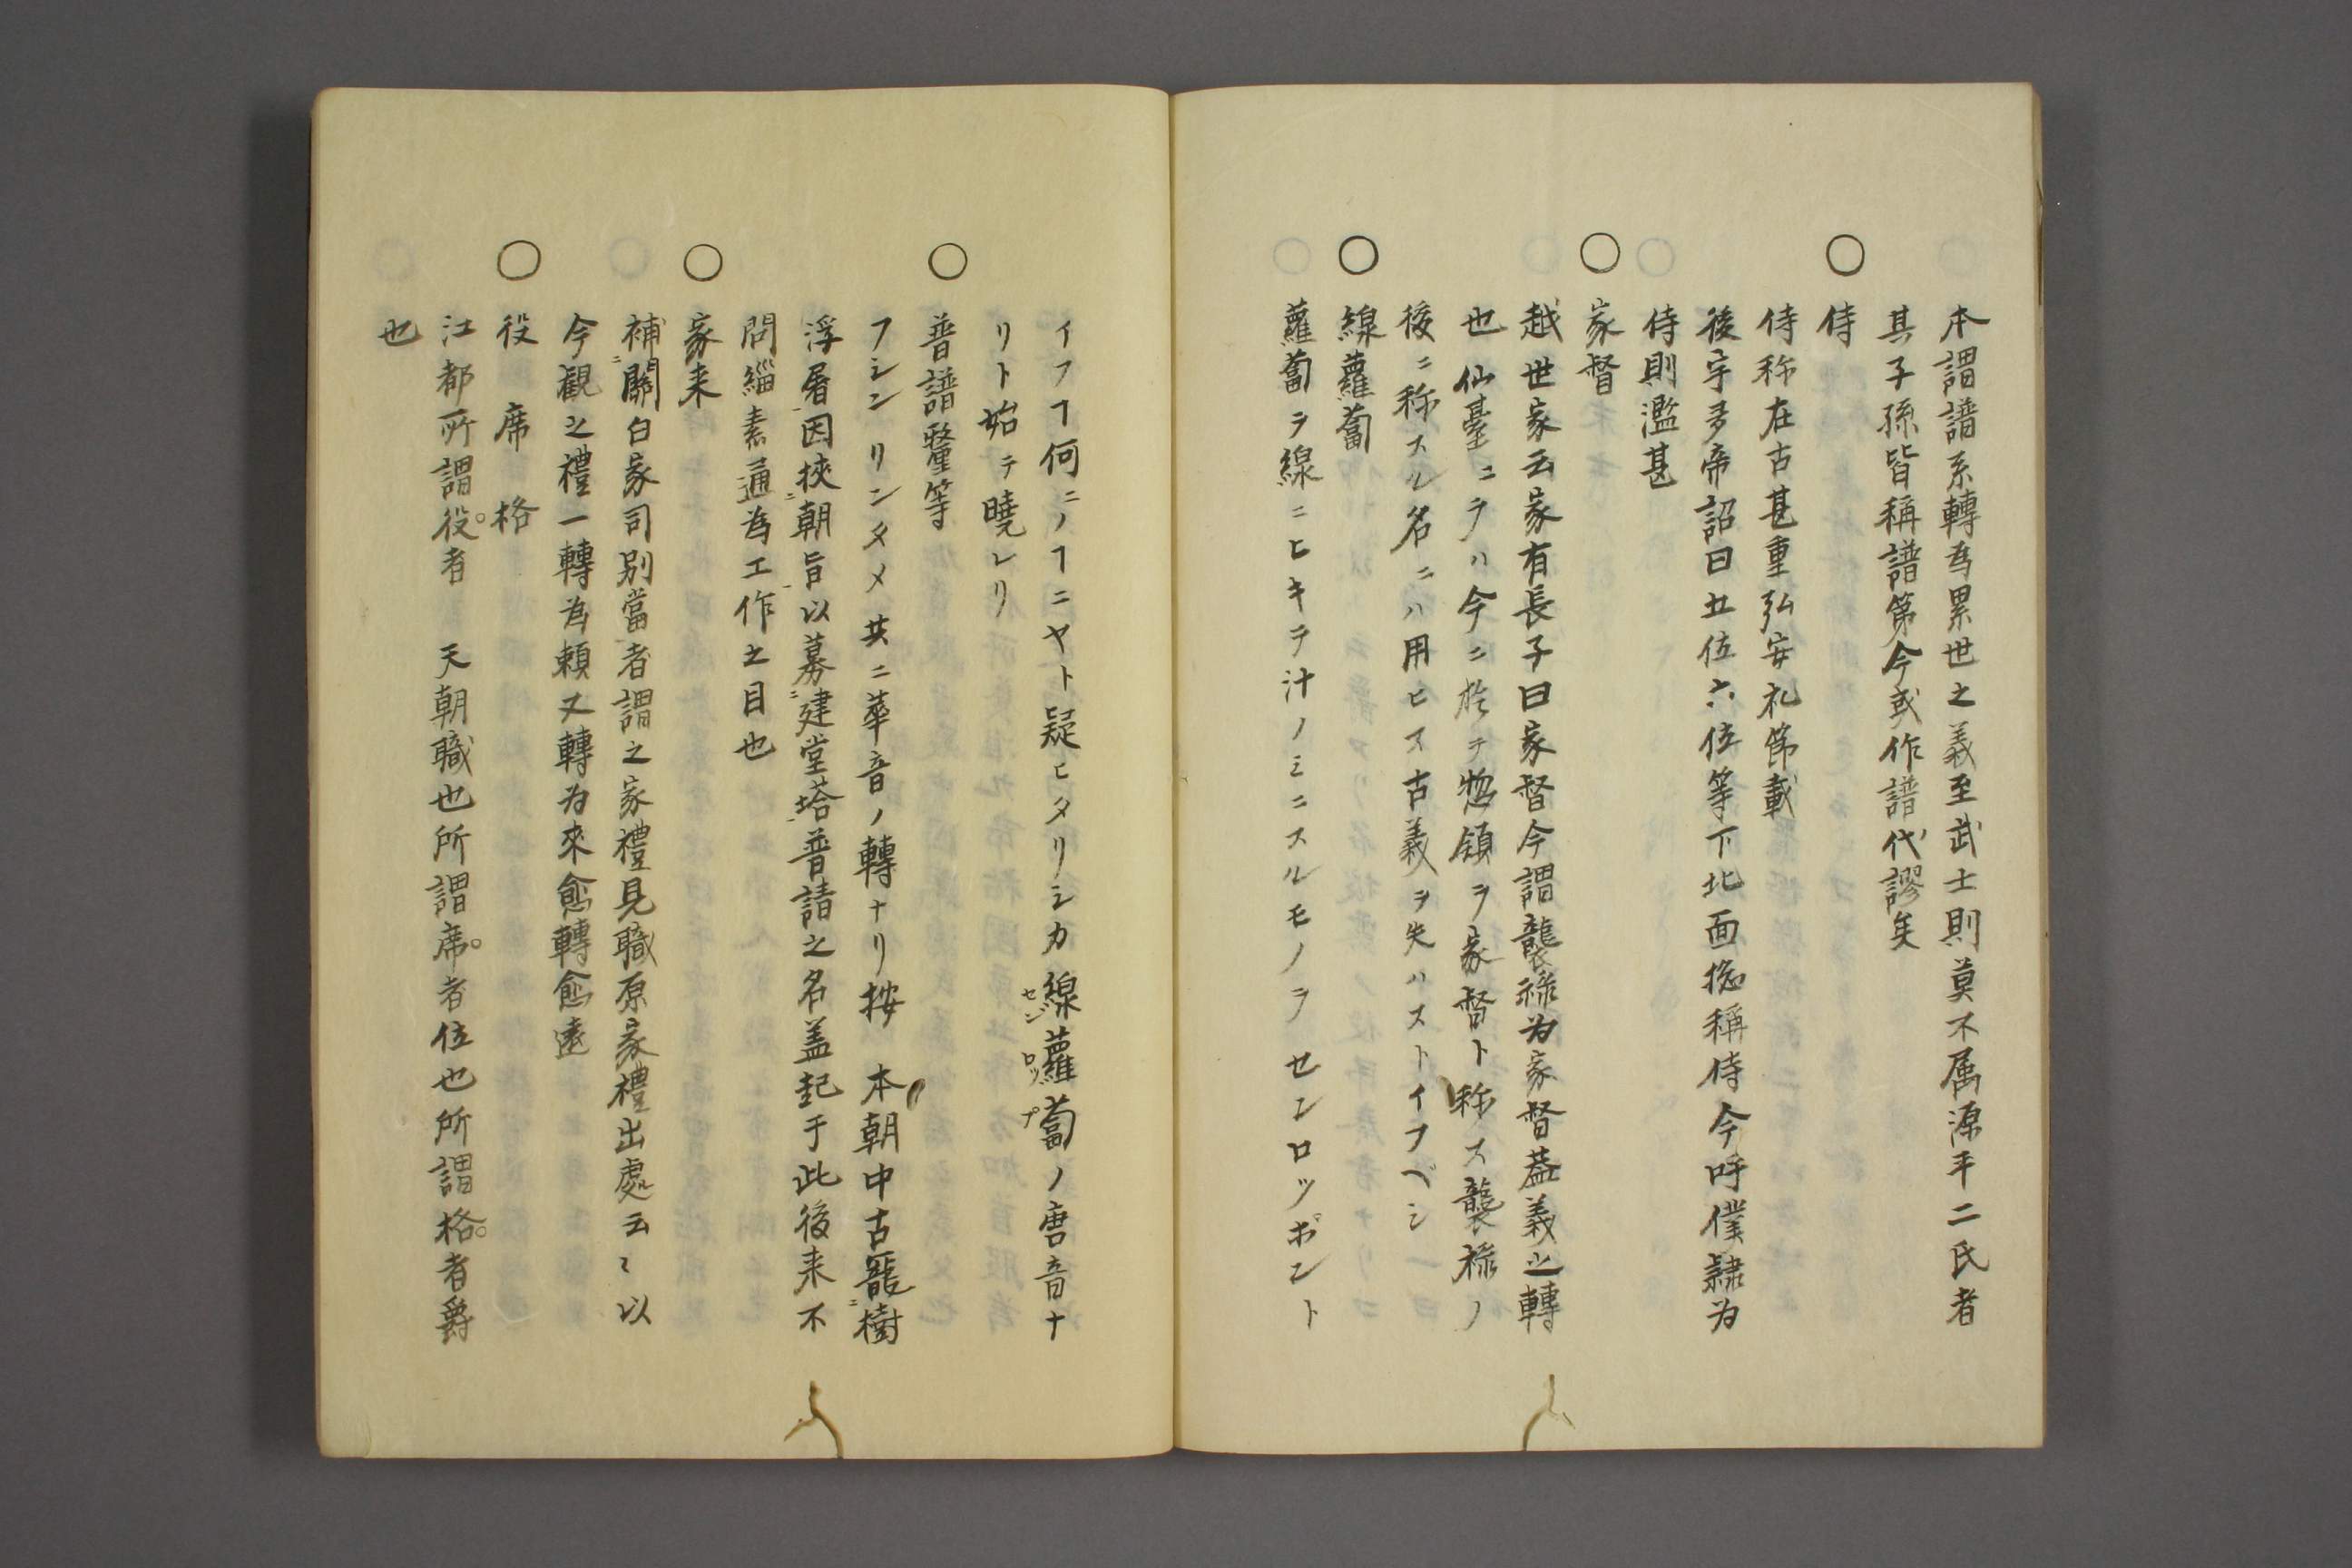 本謂譜系轉為累世之義至武士則莫不属源平二氏者
其子孫皆稱譜第今或作譜代謬矣
○侍
侍称在古甚重弘安礼節載
後宇多帝詔曰五位六位等下北面揔稱侍今呼僕隷为
侍則濫甚
○家督
越世家云家有長子曰家督今謂襲祿为家督蓋義之轉
也仙臺ニテハ今ニ於テ惣領ヲ家督ト称ス襲祿ノ
後ニ称スル名ニハ用ヒス古義ヲ失ハストイフベシ
○線蘿蔔
蘿蔔ヲ線ニヒキテ汁ノミニスルモノヲセンロツポント
イフヿ何ニノヿニヤト疑ヒタリシカ線蘿蔔ノ唐音ナ
セン ロツ プ
リト始テ曉レリ
○普譜釐等
フシンリンタメ共ニ華音ノ轉ナリ按 本朝中古寵樹
浮屠因挾朝旨以募建堂塔普請之名盖起于此後来不
問緇素通為工作之目也
○家来
補關白家司別當者謂之家禮見職原家禮出處云〻以
今觀之禮一轉為頼又轉为來愈轉愈遠
○役 席 格
江都所謂役者 天朝職也所謂席者位也所謂格者爵
也